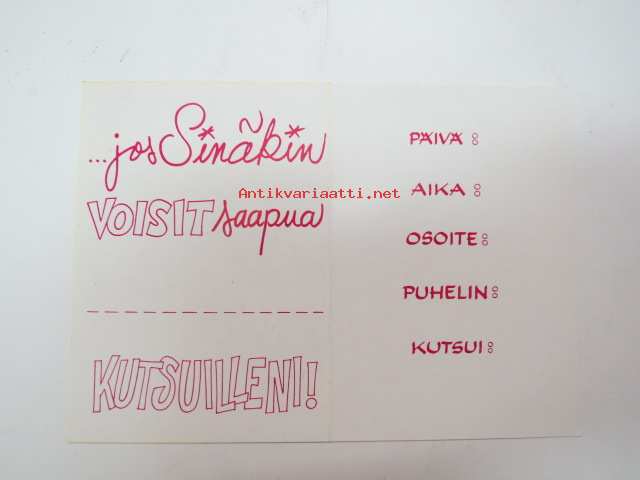 ...jos Sinäkin
VOISIT saapua
KUTSUILLENI!
PÄIVÄ:
AIKA:
OSOITE:
PUHELIN:
KUTSUI:
Antikvariaatti.net